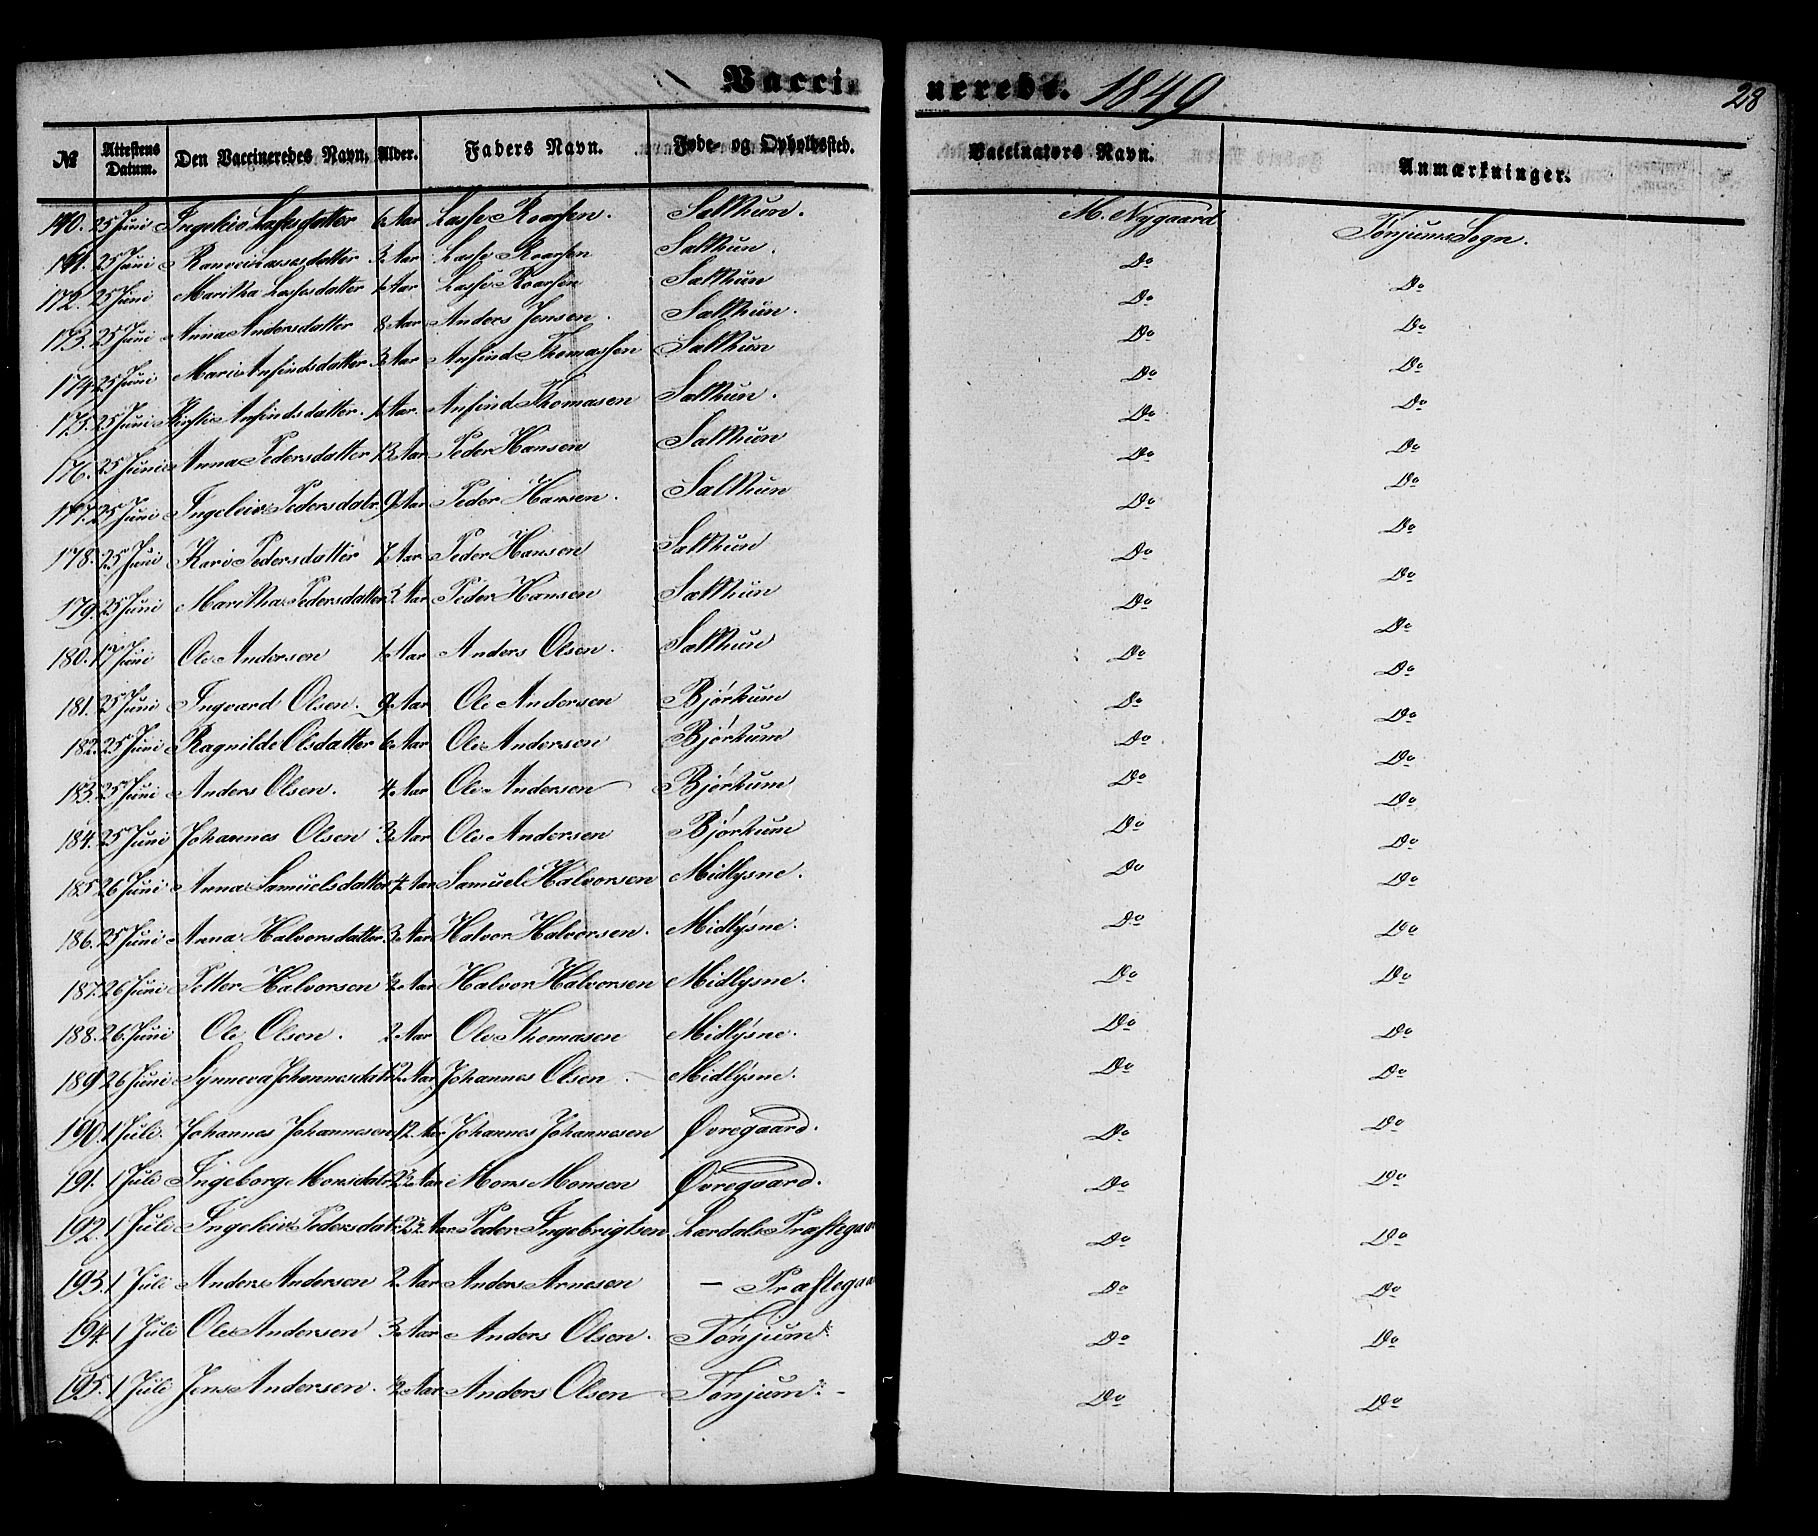 Vaccinerede. 1849
28
№ Attestens Datum. Den Vaccineredes Navn. Alder. Faders Navn. Føde- og Opholdssted. Vaccinators Navn. Anmærkninger.
25 Juni Ingeleiv Lassesdatter 6 Aar Lasse Roarsen. Sælthun. M. Nygaard Tønjums Sogn.
25 Juni Lassesdatter 3 Aar Lasse Roarsen Sælthun. Do
172. 25 Juni Maritha Lassesdatter 1 Aar Lasse Roarsen Sælthun Do Do
173. 25 Juni Anna Andersdatter 8 Aar Anders Jensen. Sælthun. Do Do
174 25 Juni Mari Anfindsdatter 3 Aar Anfind Thomassen Sælthun Do Do
175. 25 Juni Anfindsdatter. 1 Aar. Anfind Thomasen Sælthun. Do Do
176. 25 Juni Anna Pedersdatter 13 Aar Peder Hansen Sælthun Do Do
177. 25 Juni Ingeleiv Pedersdatr. 9 Aar Peder Hansen. Sælthun Do Do
178. 25 Juni Kari Pedersdatter 7 Aar Peder Hansen Sælthun Do Do
179. 25 Juni Maritha Pedersdatter 3 Aar Peder Hansen Sælthun Do Do
180. 17 Juni Ole Andersen 1 Aar Anders Olsen. Sælthun Do Do
181. 25 Juni Ingvard Olsen. 9 Aar Ole Andersen Bjørkum Do Do
182. 25 Juni Ragnilde Olsdatter 6 Aar Ole Andersen Bjørkum Do Do
183. 25 Juni Anders Olsen. 4 Aar Ole Andersen Bjørkum Do Do
184. 25 Juni Johannes Olsen 3 Aar Ole Andersen Bjørkum Do Do
185 26 Juni Anna Samuelsdatter Aar Samuel Halvorsen Midlysne. Do Do
186. 25 Juni Anna Halvorsdatter. 3 Aar Halvor Halvorsen. Midlysne. Do Do
187. 26 Juni Petter Halvorsen ½ Aar Halvor Halvorsen Midlysne. Do Do
188. 26 Juni Ole Olsen. 2 Aar Ole Thomasen Midlysne. Do Do
189 26 Juni Synneva Johannesdatr 12 Aar Johannes Olsen. Midlysne. Do Do
190. 1 Juli. Johannes Johannesen 12 Aar Johannes Johannesen Øvregaard. Do Do
191. 1 Juli Ingeborg Monsdatr Aar Mons Monsen Øvregaard. Do Do
192. 1 Juli Ingeleiv Pedersdatr Aar Peder Ingebrigtsen Lærdals Præstegaa Do Do
193. 1 Juli Anders Andersen 2 Aar Anders Arnesen — Præstegaa Do Do
194. 1 Juli Ole Andersen 3 Aar Anders Olsen. Tønjum Do Do
195. 1 Juli Jens Andersen. ½ Aar Anders Olsen Tønjum - Do Do